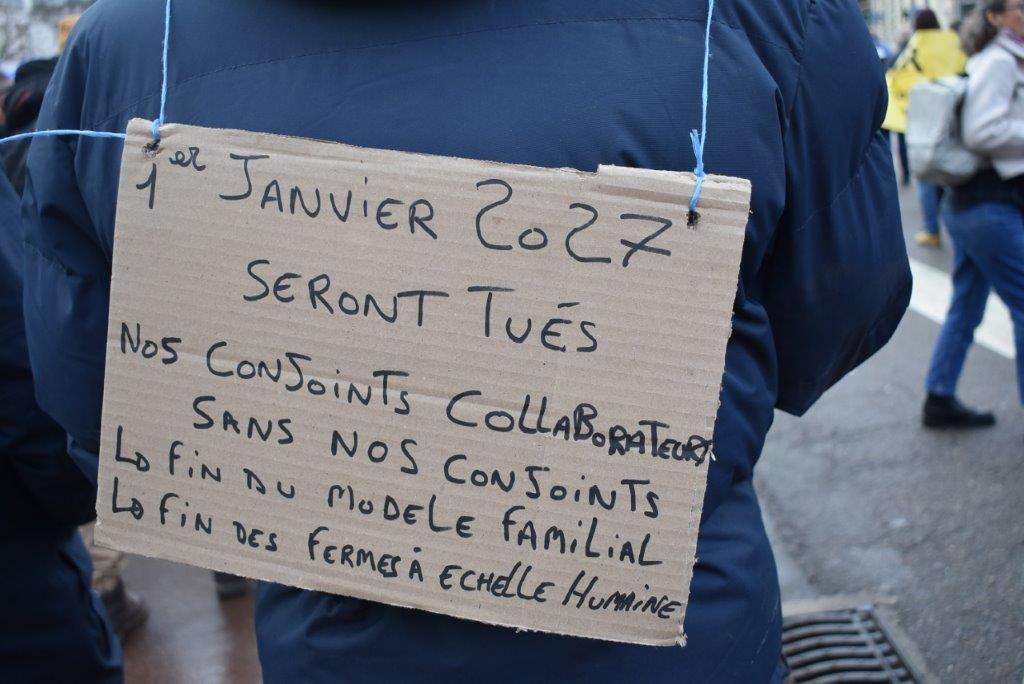 1er JANVIER 2027
SERONT TUÉS
NOS CONJOINTS COLLABORATEURS
SANS NOS CONJOINTS
LA FIN DU MODELE FAMILIAL
LA FIN DES FERMES À ECHELLE HUMAINE